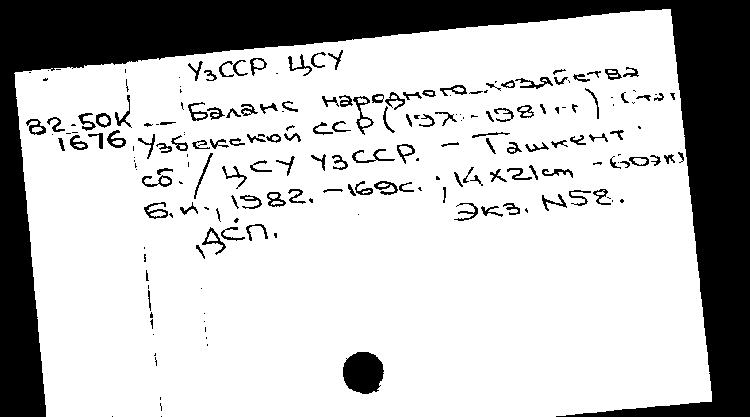 УзССР ЦСУ
82-50К -- Баланс народного хозяйства
1676 Узбекской ССР (197 -1981 гг) : Стат
сб. / ЦСУ УзССР. - Ташкент :
Б.и., 1982. - 169с. ; 14х21cm - 60экз
ДСП. Экз. N58.